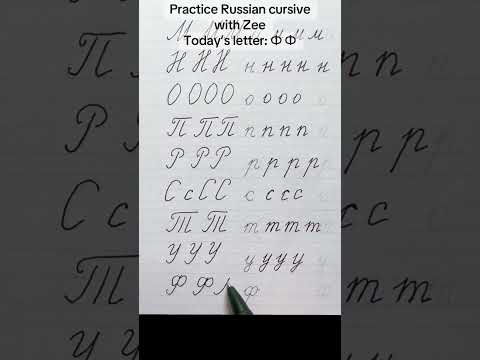 Practice Russian cursive
with Zee
Today's letter: Ф Ф
М м м
Н Н Н н н н н н
О О О О о о о о
П П П п п п п
Р Р Р р р р р
С с С С с с с с
Т Т т т т т
У У У у у у у
Ф Ф ф